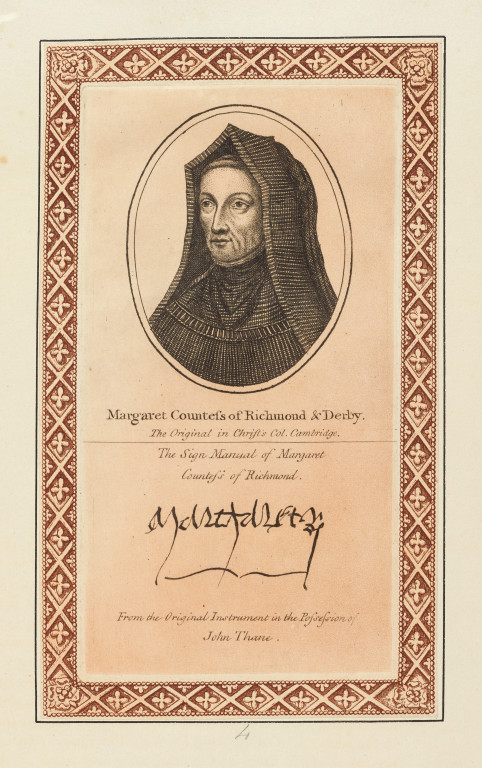 Margaret Counteſs of Richmond & Derby.
The Original in Christ's Col. Cambridge.
The Sign Manual of Margaret
Counteſs of Richmond.
From the Original Instrument in the Poſseſsion of
John Thane.
4